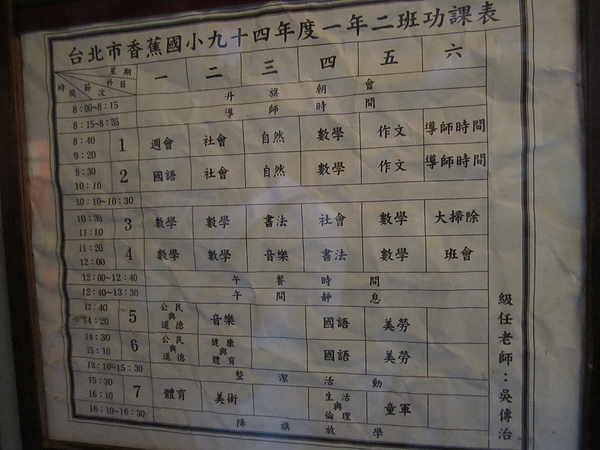 台北市香蕉國小九十四年度一年二班功課表
星期 科目 節次 時間 一 二 三 四 五 六
8:00~8:15 升旗朝會
8:15~8:35 導師時間
8:40 9:20 1 週會 社會 自然 數學 作文 導師時間
9:30 10:10 2 國語 社會 自然 數學 作文 導師時間
10:10~10:30
10:30 11:10 3 數學 數學 書法 社會 數學 大掃除
11:20 12:00 4 數學 數學 音樂 書法 數學 班會
12:00~12:40 午餐時間
12:40~13:30 午間靜息
13:40 14:20 5 公民與道德 音樂 國語 美勞
14:30 15:10 6 公民與道德 健康與體育 國語 美勞
15:10~15:30 整潔活動
15:30 16:10 7 體育 美術 生活與倫理 童軍
16:10~16:30 降旗放學
級任老師：吳傳治